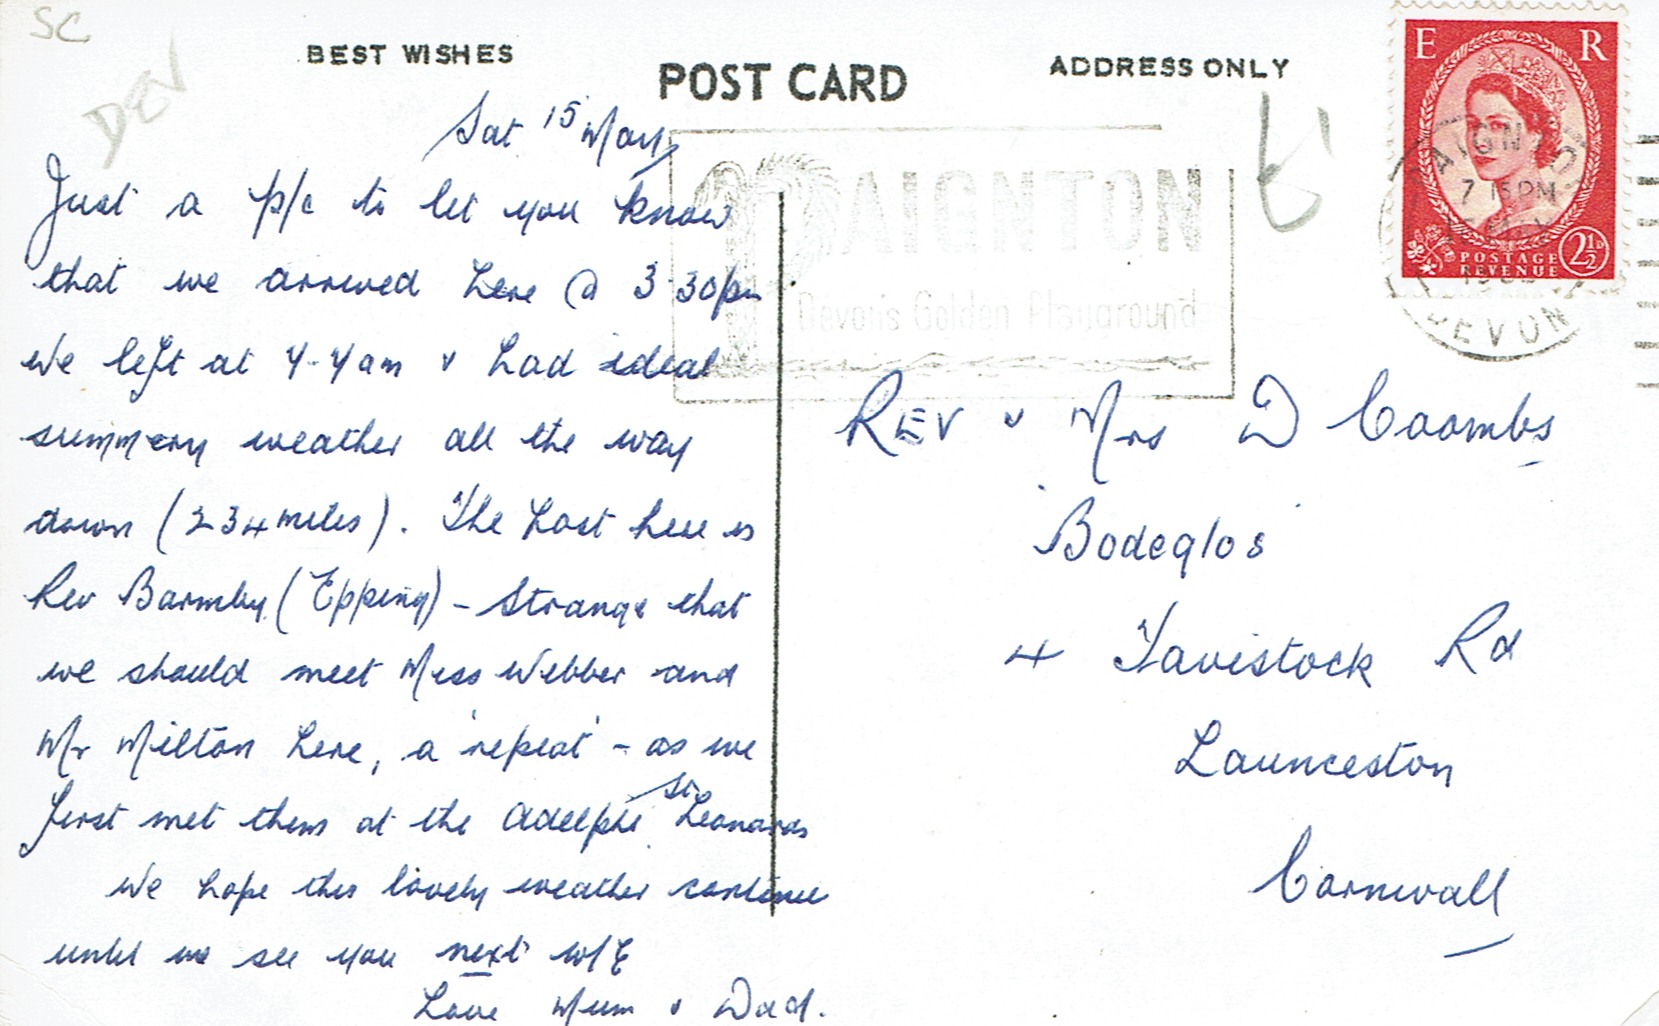 SC
DEV
BEST WISHES
POST CARD
ADDRESS ONLY
E R
POSTAGE
REVENUE
2½D
PAIGNTON
7 15 PM
DEVON
PAIGNTON
Devon's Golden Playground
Sat 15 May
Just a p/c to let you know
that we arrived here @ 3.30pm
We left at 4-4am & had ideal
summery weather all the way
down (234 miles). The host here is
Rev Barmby (Epping) - Strange that
we should meet Miss Webber and
Mr Milton here, a 'repeat' - as we
first met them at the Adelphi St Leonards
We hope this lovely weather continue
until we see you next w/E
Love Mum & Dad.
REV & Mrs D Coombs
Bodeglos
4 Tavistock Rd
Launceston
Cornwall